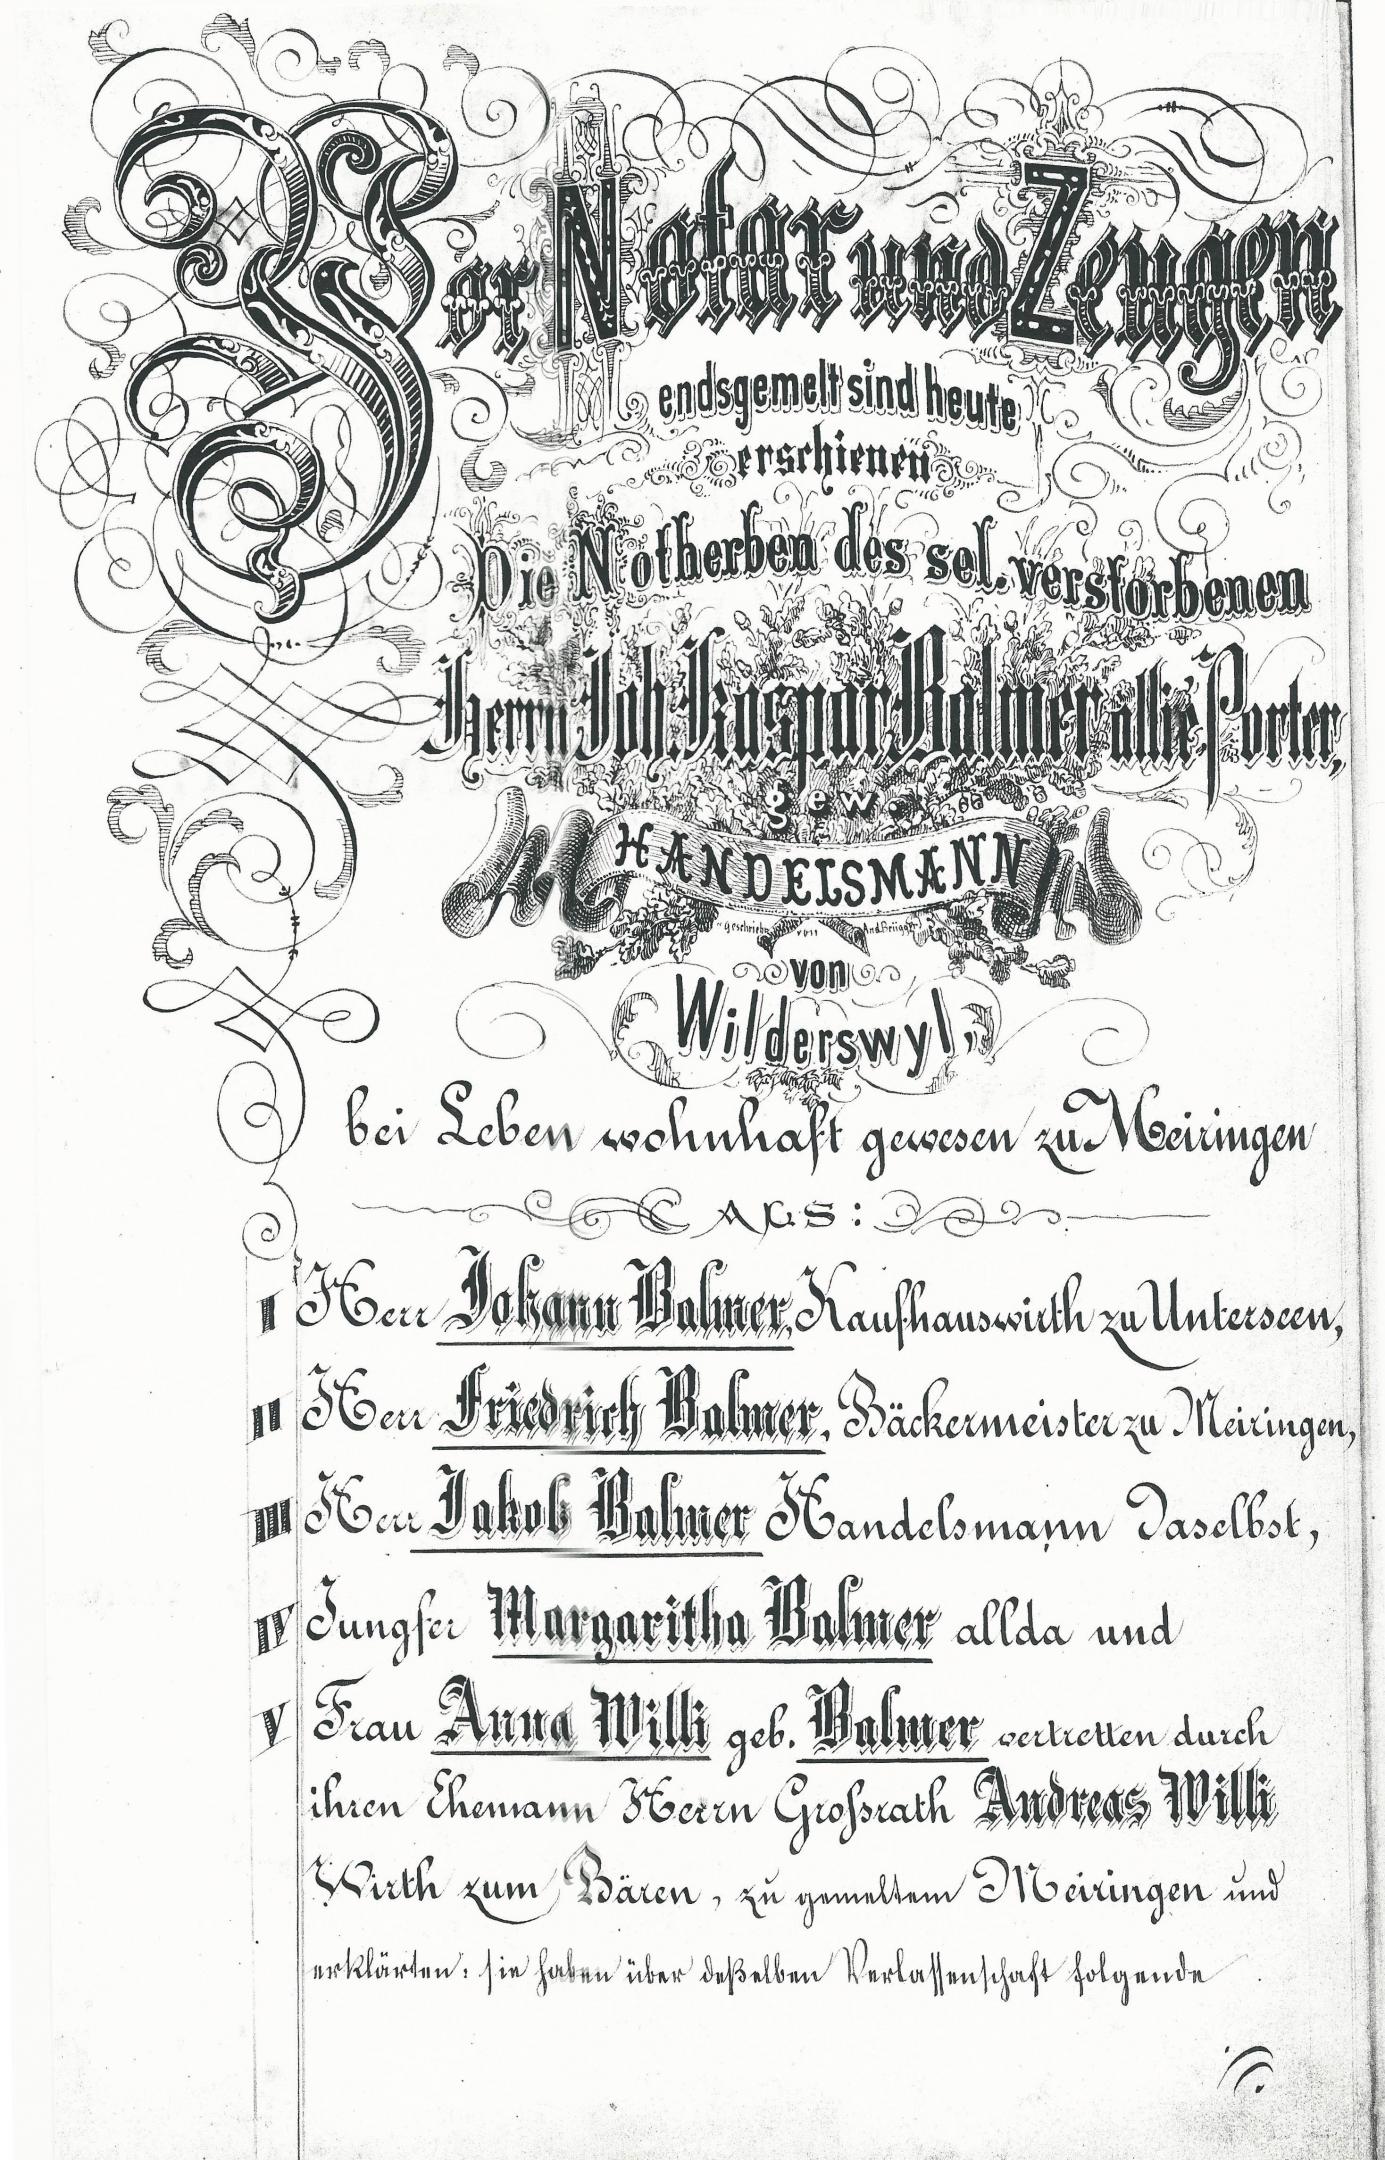 Vor Notar und Zeugen
endsgemelt sind heute
erschienen
Die Notherben des sel. verstorbenen
Herrn Joh. Kaspar Balmer allié Porter,
gew.
HANDELSMANN
Geschrieben von And. Brügger
von
Wilderswyl,
bei Leben wohnhaft gewesen zu Meiringen
ALS:
I Herr Johann Balmer, Kaufhauswirth zu Unterseen,
II Herr Friedrich Balmer, Bäckermeister zu Meiringen,
III Herr Jakob Balmer Handelsmann daselbst,
IV Jungfer Margaritha Balmer allda und
V Frau Anna Willi geb. Balmer vertretten durch
ihren Ehemann Herrn Großrath Andreas Willi
Wirth zum Bären, zu gemeltem Meiringen und
erklärten: sie haben über deßelben Verlassenschaft folgende